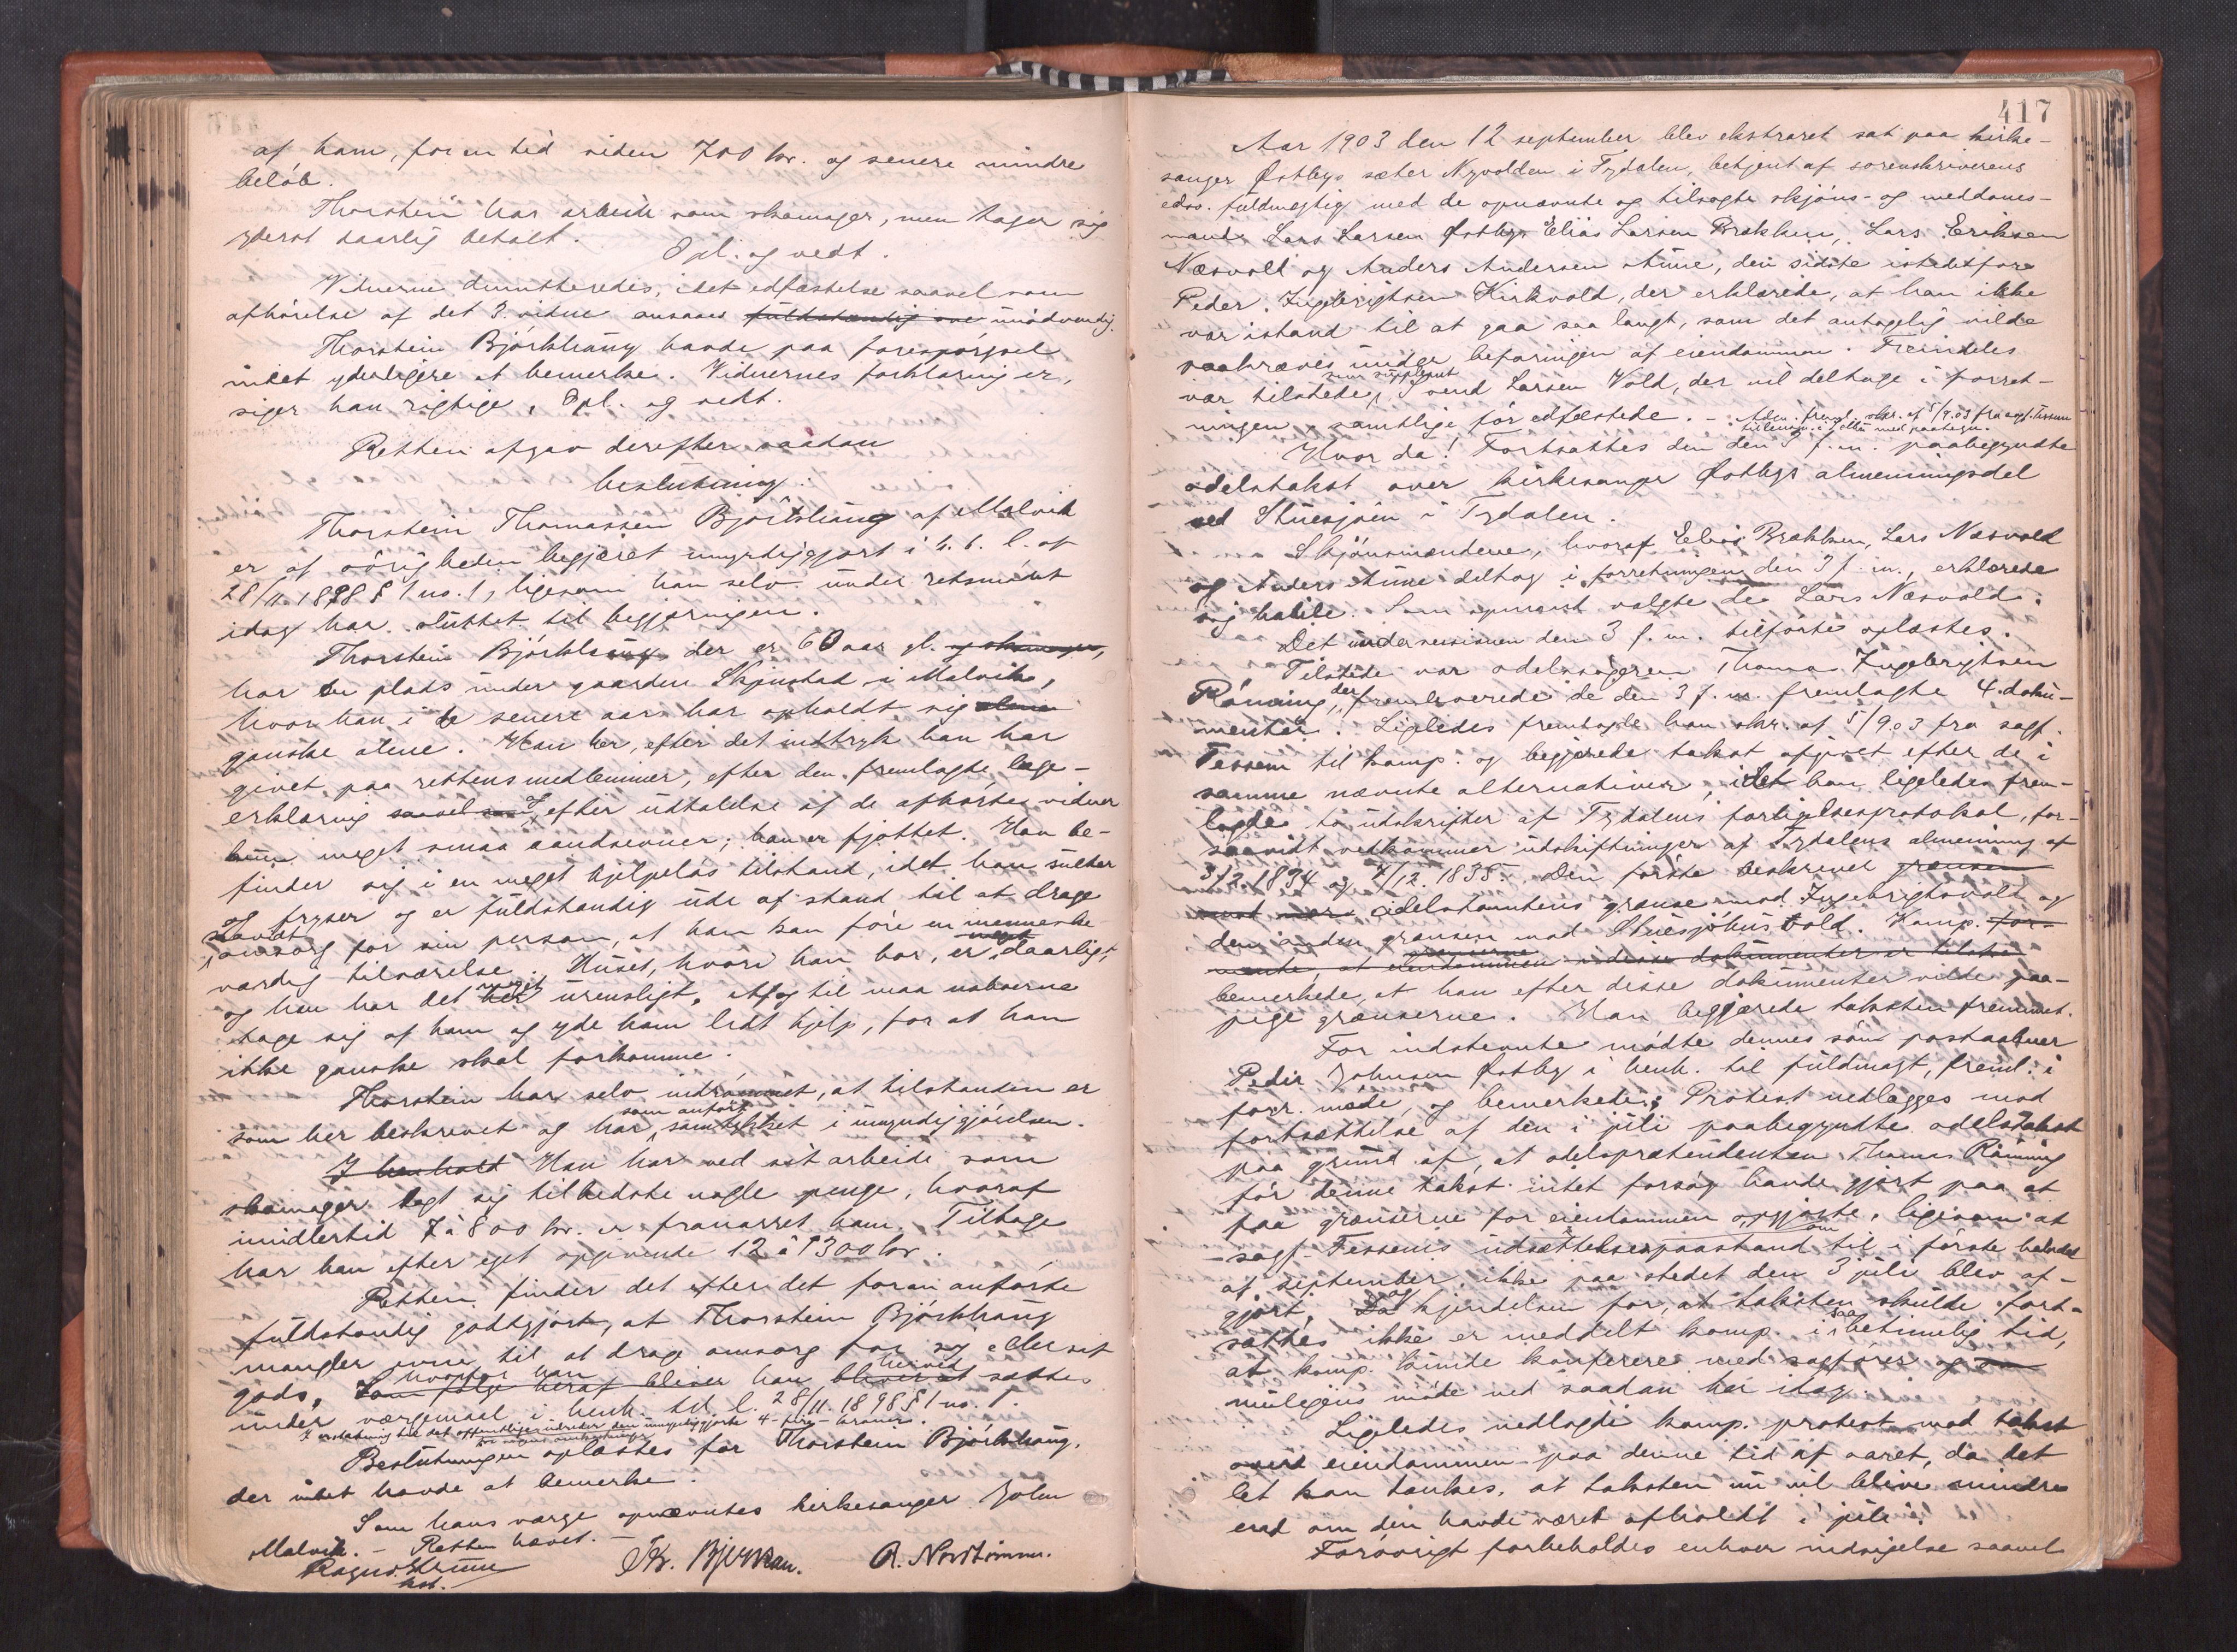 af ham, for en tid siden 700 kr. og senere mindre
beløb.
Thorstein har arbeide som skomager, men tager sig
yderst daarlig betalt.
Opl. og vedt.
Vidnerne dimitteredes, idet edfæstelse saavel som
afhørelse af det 3. vidne ansaaes fuldstændig ove unødvendig.
Thorstein Björkhaug havde paa forespørgsel
intet yderligere at bemerke. Vidnernes forklaring er,
siger han rigtige. Opl. og vedt.
Retten afgav derefter saadan
beslutning:
Thorstein Thomassen Björkhaug af Malvik
er af øvrigheden begjæret umyndiggjort i h. t. l. af
28/11 1898 § 1 no. 1, ligesom han selv under retsmødet
idag har sluttet til begjæringen.
Thorstein Björkhaug der er 60 aar gl. og skomager,
har en plads under gaarden Skjenstad i Malvik,
hvor han i de senere aar har opholdt sig alene
ganske alene. Han er, efter det indtryk han har
givet paa rettens medlemmer, efter den fremlagte læge-
erklæring saavel som efter udtalelse af de afhørte vidner
kun meget smaa aandsevner; han er fjottet. Han be-
finder sig i en meget hjelpeløs tilstand, idet han sulter
og fryser og er fuldstændig ude af stand til at drage
saadan
omsorg for sin person, at han kan føre en menneske-
meget
værdig tilværelse. Huset, hvori han bor, er daarligt,
meget
og han har det her urensligt. Af og til maa naboerne
tage sig af ham og yde ham lidt hjelp, for at han
ikke ganske skal forkomme.
Thorstein har selv indrømmet, at tilstanden er
som anført
som her beskrevet og har samtykket i umyndiggjørelsen.
I henhold Han har ved sit arbeide som
skomager lagt sig tilbedste nogle penge, hvoraf
imidlertid 7 à 800 kr. er franarret ham. Tilbage
har han efter eget opgivende 12 à 1300 kr.
Retten finder det efter det foran anførte
fuldstændig godtgjort, at Thorstein Björkhaug
mangler evne til at drage omsorg for sig eller sit
hvorfor han herved
gods. Som følge heraf bliver han bliver at sættes
under værgemaal i henh. til l. 28/11 1898 § 1 no. 1.
I erstatning til det offentlige udreder den umyndiggjorte 4 - fire - kroner.
Beslutningen oplæstes for Thorstein Björkhaug,
der intet havde at bemerke.
Som hans værge opnævntes kirkesanger John
Malvik. - Retten hævet. -
Ragnv. Strøm
kst.
Th. Bjerkan. A. Nordtømme.
417
Aar 1903 den 12 september blev ekstraret sat paa kirke-
sanger Østbys sæter Nyvolden i Tydalen, betjent af sorenskriverens
edsv. fuldmægtig med de opnævnte og tilsagte skjøns- og meddoms-
mænd Lars Larsen Østby, Elias Larsen Brækken, Lars Eriksen
Næsvold og Anders Andersen Aune, den sidste istedetfor
Peder Ingebrigtsen Kirkvold, der erklærede, at han ikke
var istand til at gaa saa langt, som det antagelig vilde
paakræves under befaringen af eiendommen. Fremdeles
som suppleant
var tilstede Svend Larsen Vold, der vil deltage i forret-
ningen, samtlige før edfæstede. - Adm. fremł. skr. af 5/9 03 fra sagf. Tessem
med paategn.
Hvor da! Fortsattes den den 3 f. m. paabegyndte
odelstakst over kirkesanger Østbys almenningsdel
ved Stuesjøen i Tydalen.
Skjønsmændene, hvoraf Elias Brækken, Lars Næsvold
og Anders Aune deltog i forretningen den 3 f. m., erklærede
sig habile. Som opmand valgte de Lars Næsvold.
Det under sessionen den 3 f. m. tilførte oplæstes.
Tilstede var odelssøgeren Thomas Ingebrigtsen
der
Rønning, fremleverede de den 3 f. m. fremlagte 4 doku-
menter. Ligeledes fremlagde han skr. af 5/9 03 fra sagf.
Tessem til komp. og begjærede takst afgivet efter de i
samme nævnte alternativer, idet han ligeledes frem-
lagde to udskrifter af Tydalens forligelsesprotokol, for-
saavidt vedkommer udskiftninger af Tydalens almenning af
3/12 1834 og 7/12 1835. Den første beskrevet grænsen
mod odelstomtens grænse mod Ingebrigtsvold og
den anden grænsen mod Stuesjøhusvold. Komp. for-
grænserne
mente, at eiendommen i disse dokumenter er
bemerkede, at han efter disse dokumenter vilde paa-
pege grænserne. Han begjærede taksten fremmet.
For indstevnte mødte dennes søn postaabner
Peder Johnsen Østby i henh. til fuldmagt, freml. i
forr. møde, og bemerkede: Protest nedlægges mod
fortsættelse af den i juli paabegyndte odelstakst
paa grund af, at odelsprætendenten Thomas Rønning
før denne takst intet forsøg havde gjort paa at
faa grænserne for eiendommen opgjorte, ligesom at
om
sagf. Tessems udsættelsespaastand til i første halvdel
af september ikke paa stedet den 3 juli blev af-
og
gjort, Da kjendelsen for, at taksten skulde fort-
saa
sættes ikke er meddelt komp. i betimelig tid,
at komp. kunde konferere med sagfører og
muligens møde med saadan her idag.
Ligeledes nedlagde komp. protest mod takst
over eiendommen paa denne tid af aaret, da det
let kan tænkes, at taksten nu vil blive mindre
end om den havde været afholdt i juli.
Forøvrigt forbeholdes enhver indsigelse saavel